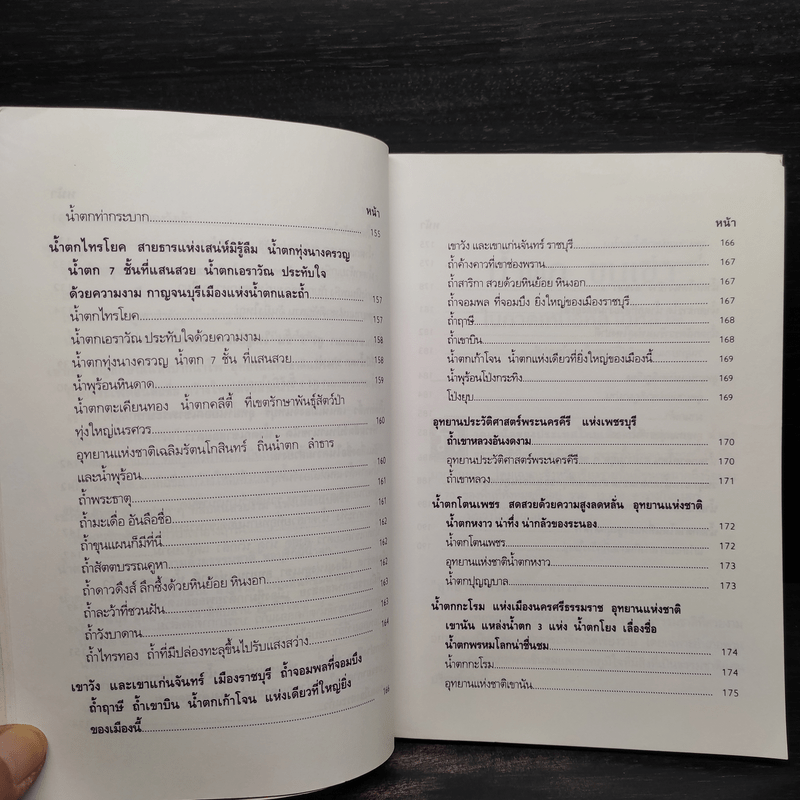 หน้า
น้ำตกท่ากระบาก 155
น้ำตกไทรโยค สายธารแห่งเสน่ห์มิรู้ลืม น้ำตกทุ่งนางครวญ
น้ำตก 7 ชั้นที่แสนสวย น้ำตกเอราวัณ ประทับใจ
ด้วยความงาม กาญจนบุรีเมืองแห่งน้ำตกและถ้ำ 157
น้ำตกไทรโยค 157
น้ำตกเอราวัณ ประทับใจด้วยความงาม 158
น้ำตกทุ่งนางครวญ น้ำตก 7 ชั้น ที่แสนสวย 158
น้ำพุร้อนหินดาด 159
น้ำตกตะเคียนทอง น้ำตกคลีตี้ ที่เขตรักษาพันธุ์สัตว์ป่า
ทุ่งใหญ่เนรศวร 160
อุทยานแห่งชาติเฉลิมรัตนโกสินทร์ ถิ่นน้ำตก ลำธาร
และน้ำพุร้อน 160
ถ้ำพระธาตุ 161
ถ้ำมะเดื่อ อันลือชื่อ 161
ถ้ำขุนแผนก็มีที่นี่ 162
ถ้ำสัตตบรรณคูหา 162
ถ้ำดาวดึงส์ ลึกซึ้งด้วยหินย้อย หินงอก 163
ถ้ำละว้าที่ชวนฝัน 163
ถ้ำวังบาดาน 164
ถ้ำไทรทอง ถ้ำที่มีปล่องทะลุขึ้นไปรับแสงสว่าง
เขาวัง และเขาแก่นจันทร์ เมืองราชบุรี ถ้ำจอมพลที่จอมบึง
ถ้ำฤาษี ถ้ำเขาบิน น้ำตกเก้าโจน แห่งเดียวที่ใหญ่ยิ่ง
ของเมืองนี้ 166
หน้า
เขาวัง และเขาแก่นจันทร์ ราชบุรี 166
ถ้ำค้างคาวที่เขาช่องพราน 167
ถ้ำสาริกา สวยด้วยหินย้อย หินงอก 167
ถ้ำจอมพล ที่จอมบึง ยิ่งใหญ่ของเมืองราชบุรี 167
ถ้ำฤาษี 168
ถ้ำเขาบิน 168
น้ำตกเก้าโจน น้ำตกแห่งเดียวที่ยิ่งใหญ่ของเมืองนี้ 169
น้ำพุร้อนโป่งกระทิง 169
โป่งยุบ 169
อุทยานประวัติศาสตร์พระนครคีรี แห่งเพชรบุรี
ถ้ำเขาหลวงอันงดงาม 170
อุทยานประวัติศาสตร์พระนครคีรี 170
ถ้ำเขาหลวง 171
น้ำตกโตนเพชร สดสวยด้วยความสูงลดหลั่น อุทยานแห่งชาติ
น้ำตกหงาว น่าทึ่ง น่ากลัวของระนอง 172
น้ำตกโตนเพชร 172
อุทยานแห่งชาติน้ำตกหงาว 173
น้ำตกปุญญบาล 173
น้ำตกกะโรม แห่งเมืองนครศรีธรรมราช อุทยานแห่งชาติ
เขานัน แหล่งน้ำตก 3 แห่ง น้ำตกโยง เลื่องชื่อ
น้ำตกพรหมโลกน่าชื่นชม 174
น้ำตกกะโรม 174
อุทยานแห่งชาติเขานัน 175